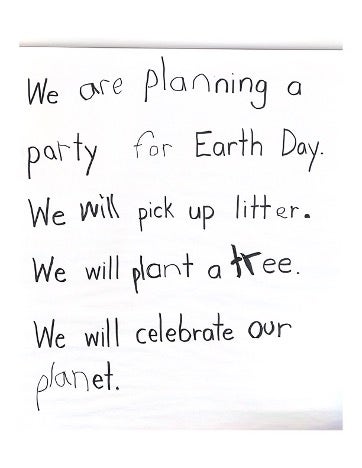 We are planning a
party for Earth Day.
We will pick up litter.
We will plant a tree.
We will celebrate our
planet.